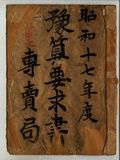 昭和十七年度
豫算要求書
專賣局